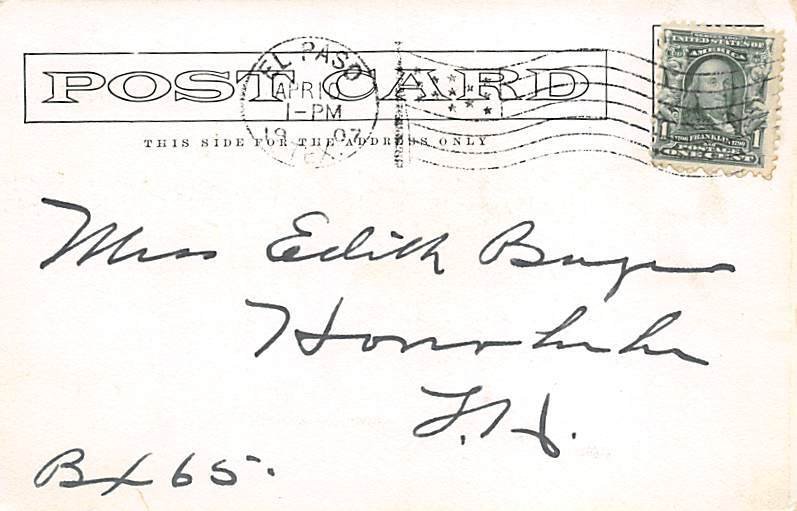 POST CARD
EL PASO
APR 10
1-PM
19 07
TEX.
THIS SIDE FOR THE ADDRESS ONLY
UNITED STATES OF
AMERICA
1 1790 FRANKLIN 1790 1
POSTAGE
ONE CENT
Miss Edith
Honolulu
T.H.
Bx 65.